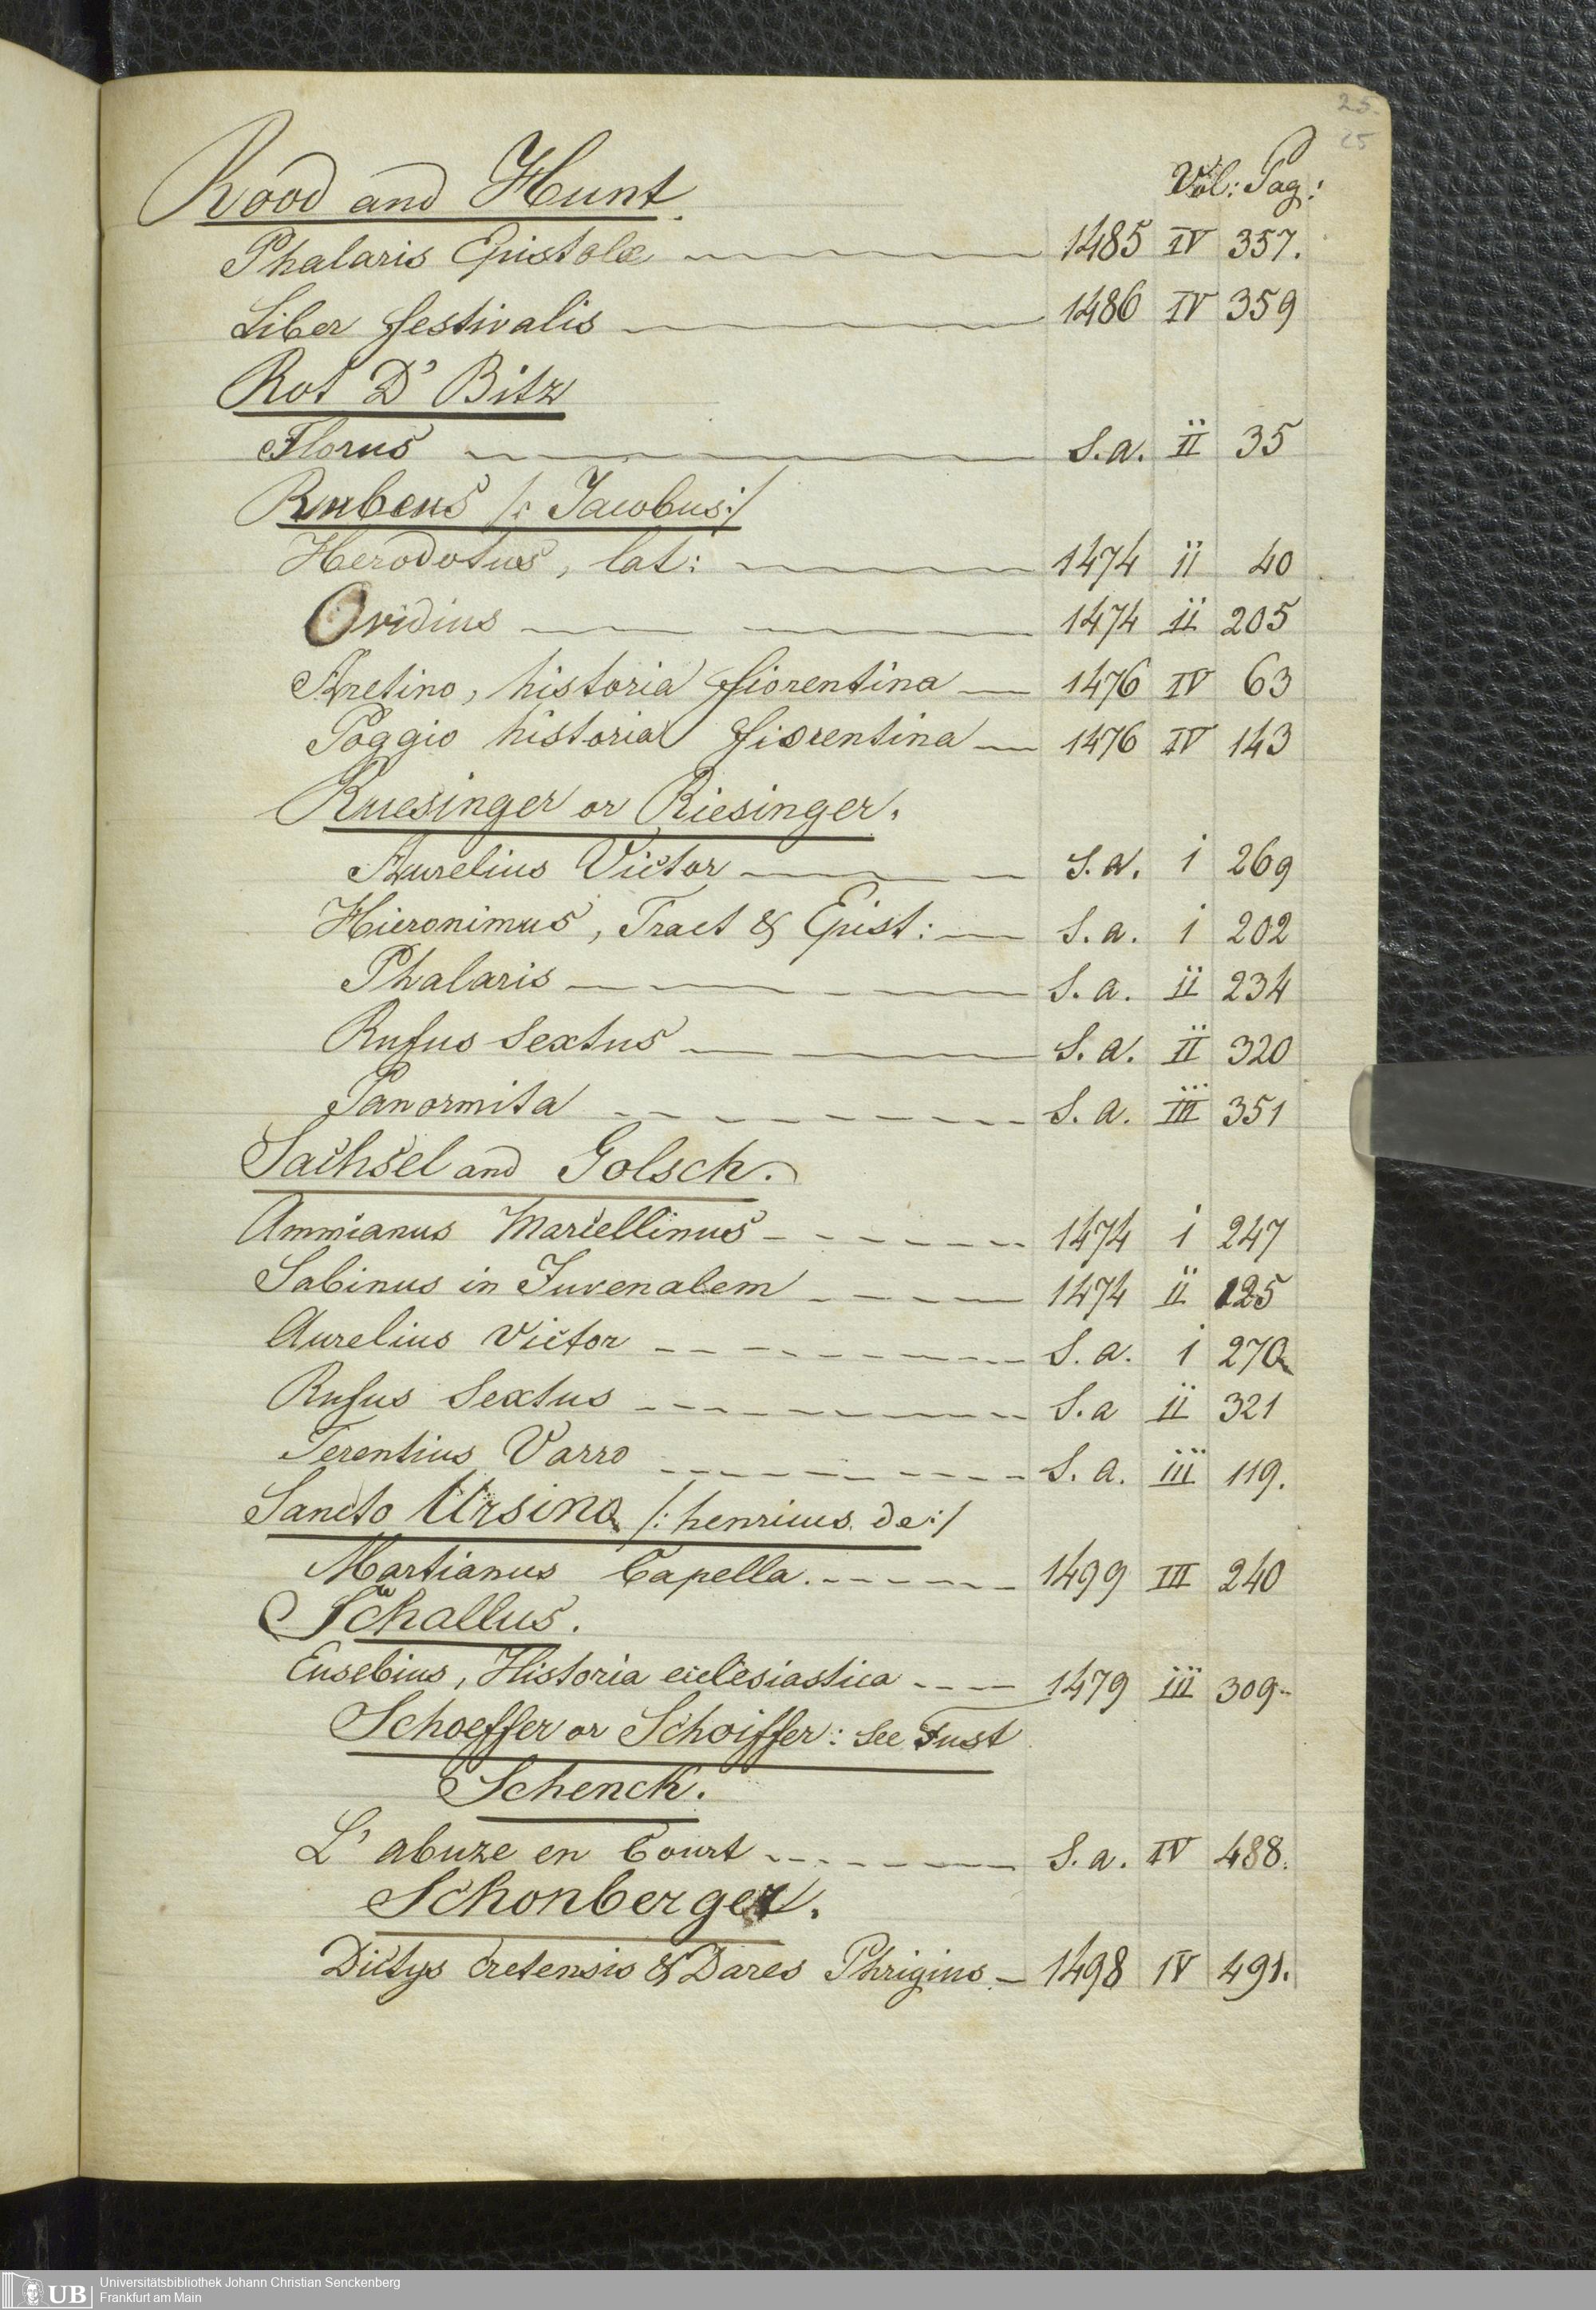 25.
25
Rood and Hunt. Vol: Pag:
Phalaris Epistolæ 1485 IV 357.
Liber festivalis 1486 IV 359
Rot D' Bitz
Florus S.a. II 35
Rubeus /: Jacobus:/
Herodotus, lat: 1474 ii 40
Ovidius 1474 ii 205
Aretino, historia fiorentina 1476 IV 63
Poggio historia fiorentina 1476 IV 143
Ruesinger or Riesinger.
Aurelius Victor S.a. i 269
Hieronimus, Tract & Epist: S.a. i 202
Phalaris S.a. ii 234
Rufus Sextus S.a. II 320
Panormita S.a. III 351
Sachsel and Golsch.
Ammianus Marcellinus 1474 i 247
Sabinus in Juvenalem 1474 ii 125
Aurelius Victor S.a. i 270
Rufus Sextus S.a ii 321
Terentius Varro S.a. iii 119.
Sancto Ursino /: henricus de:/
Martianus Capella. 1499 III 240
Schallus.
Eusebius, Historia ecclesiastica 1479 iii 309
Schoeffer or Schoiffer: See Fust
Schenck.
L' abuze en Court S.a. IV 488.
Schonberger.
Dictys Cretensis & Dares Phrigius 1498 IV 491.
UB
Universitätsbibliothek Johann Christian Senckenberg
Frankfurt am Main